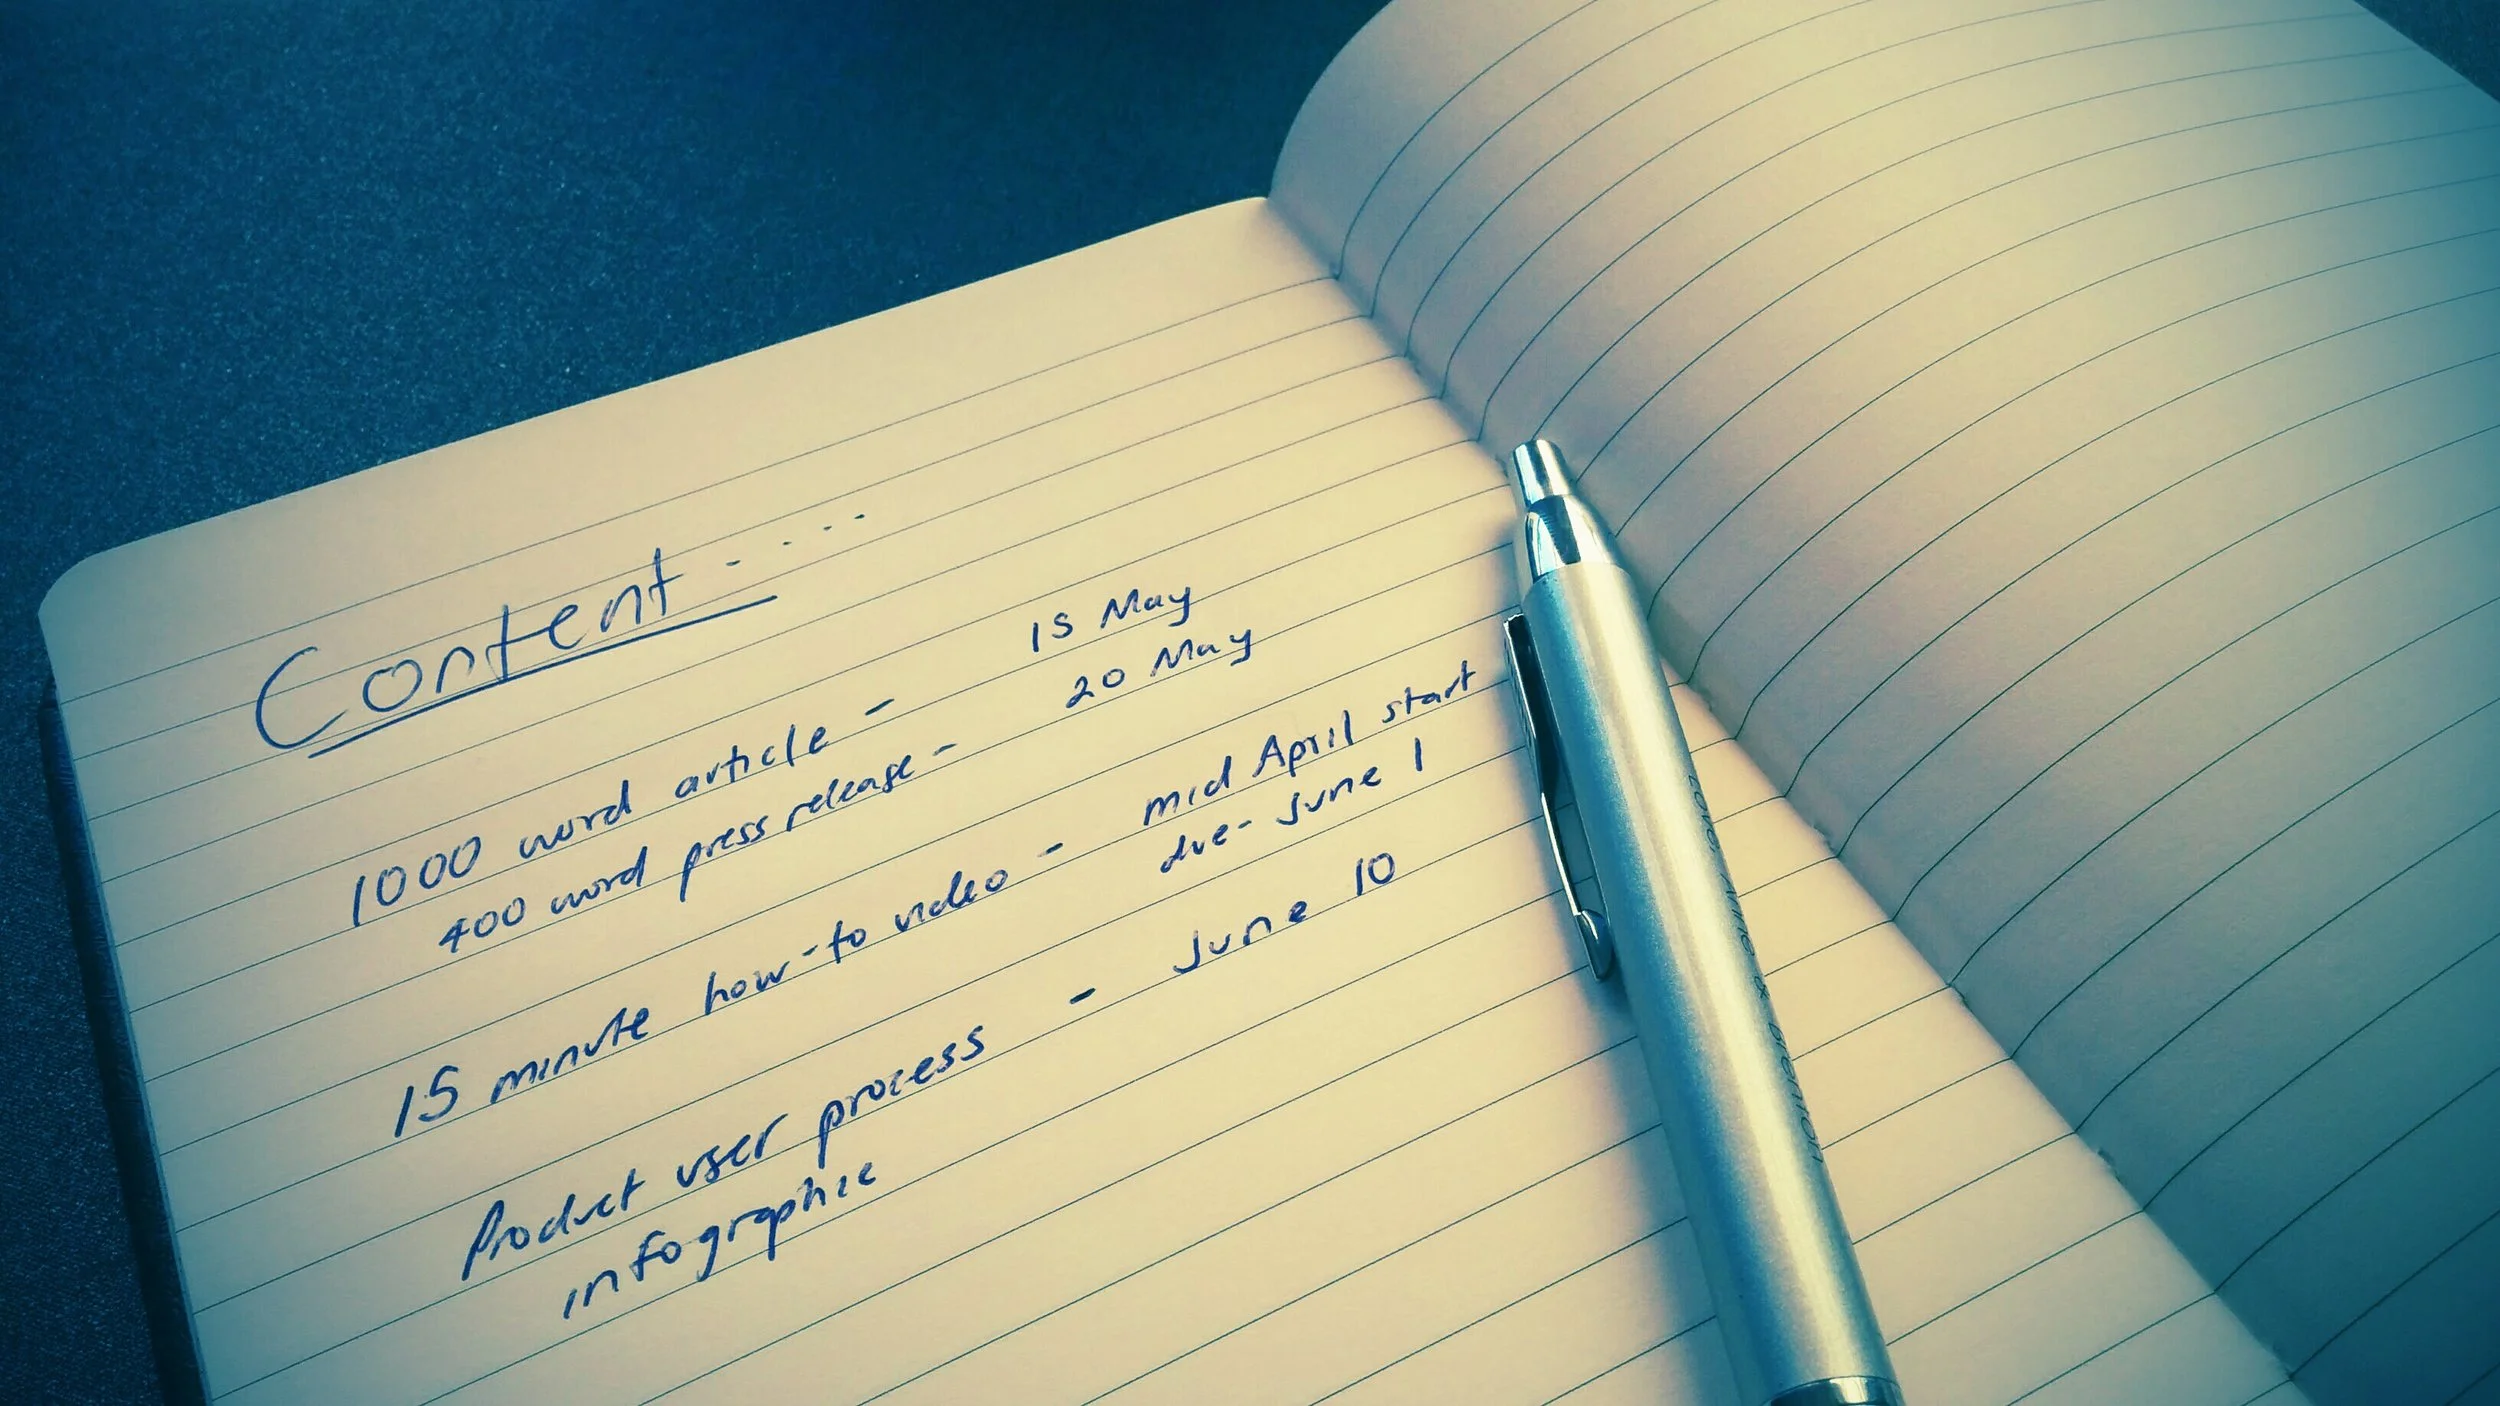 Content.....
1000 word article - 15 May
400 word press release - 20 May
15 minute how-to video - mid April start
due - June 1
Product user process - June 10
infographic